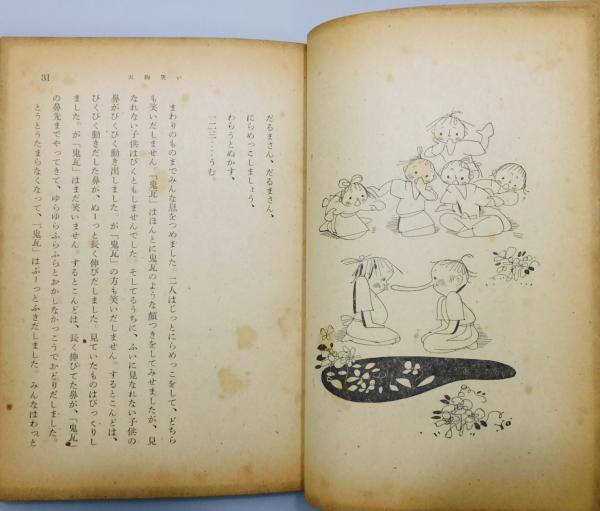 31
天狗笑い
だるまさん、だるまさん、
にらめっこしましょう、
わらうとぬかす、
一二三‥‥うむ。
まわりのものまでみんな息をつめました。二人はじっとにらめっこをして、どちら
も笑いだしません。「鬼瓦」はほんとに鬼瓦のような顔つきをしてみせましたが、見
なれない子供はびくともしませんでした。そしてるうちに、ふいに見なれない子供の
鼻がびくびく動き出しました。が「鬼瓦」の方も笑いだしません。するとこんどは、
びくびく動きだした鼻が、ぬーっと長く伸びだしました。見ていたものはびっくりし
ました。が「鬼瓦」はまだ笑いません。するとこんどは、長く伸びてた鼻が、「鬼瓦」
の鼻先までやってきて、ゆらゆらふらふらとおかしなかっこうでおどりだしました。
とうとうたまらなくなって、「鬼瓦」はぷーっとふきだしました。みんなはわっと